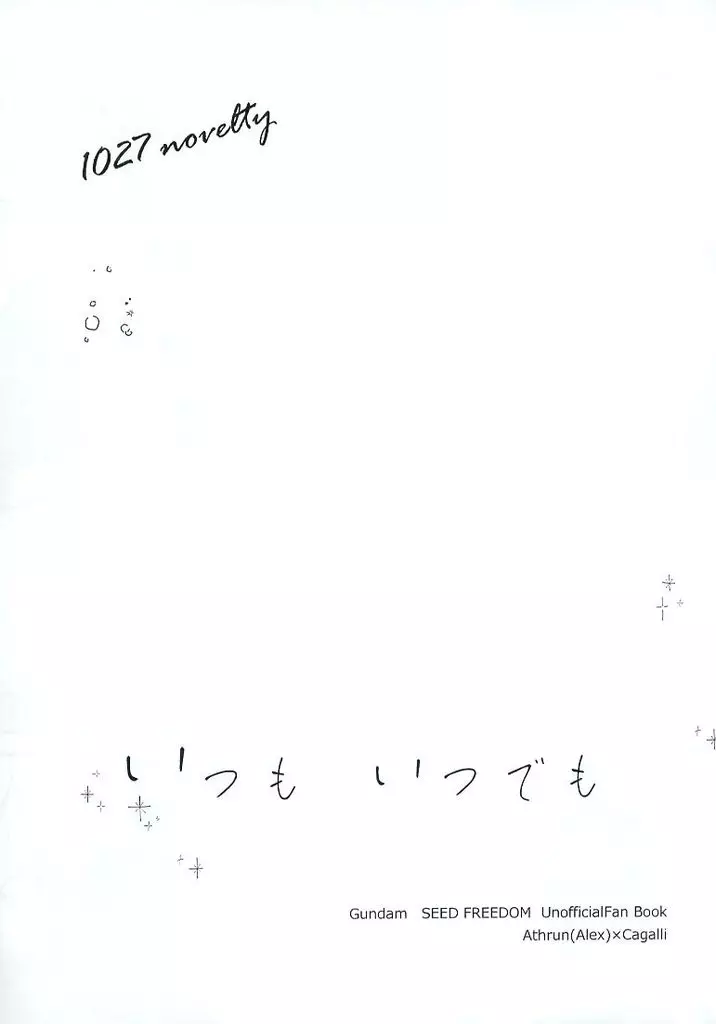 1027 novelty
いつも いつでも
Gundam SEED FREEDOM UnofficialFan Book
Athrun(Alex)×Cagalli